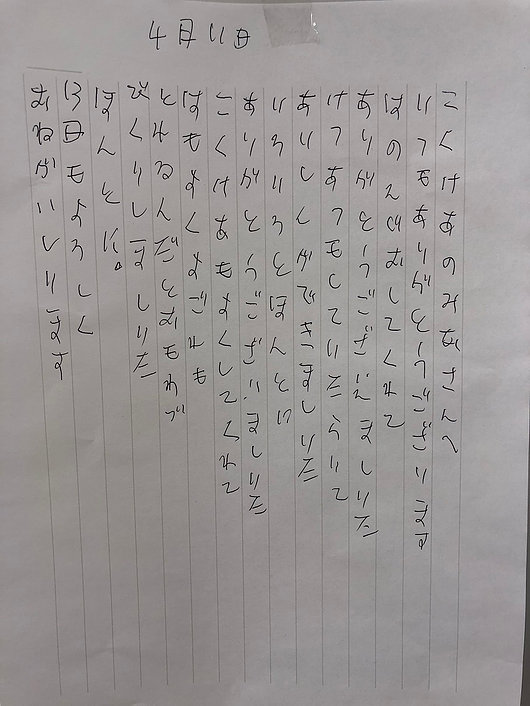 4月11日
こくけあのみなさんへ
いつもありがとうございます
はのそじおしてくれて
ありがとうございましいた
けつあつもしていたらいて
あんしんができましいた
いろいろとほんとに
ありがとうございましいた
こくけあもよくしてくれて
はもよくよごれも
とれるんだとおもわづ
びくりしましいた
ほんとに。
13日もよろしく
おねがいしいます